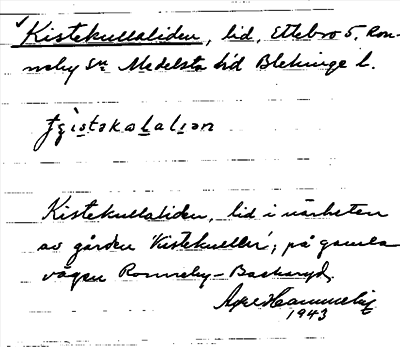 Kistekullaliden, lid, Ettebro 5, Ron-
neby sn Medelsta hd Blekinge l.
Kistekullaliden, lid i närheten
av gården Kistekullen; på gamla
vägen Ronneby–Backaryd.
1943